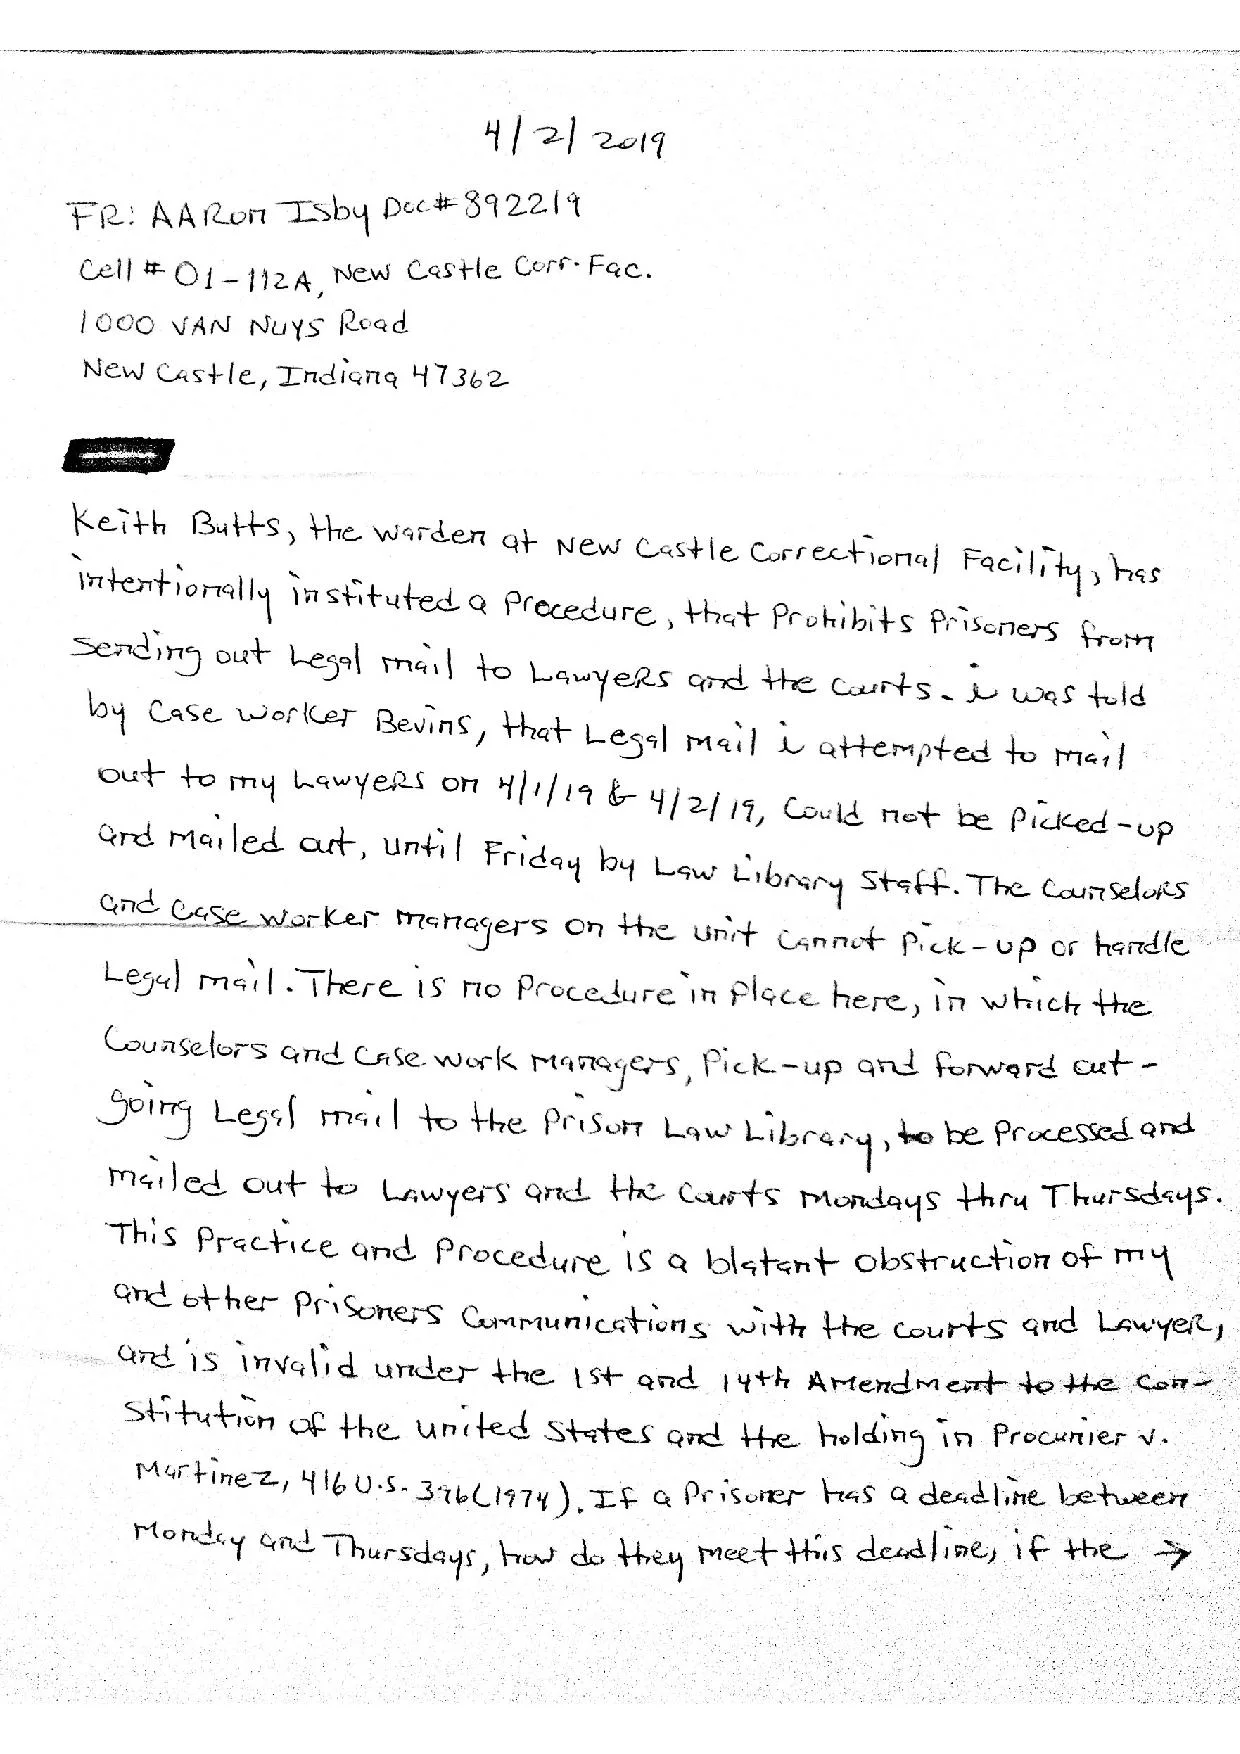 4/2/2019
FR: AARON Isby Doc# 892219
Cell # 01-112A, New Castle Corr. Fac.
1000 VAN NUYS Road
New Castle, Indiana 47362
Keith Butts, the warden at New Castle Correctional Facility, has
intentionally instituted a Procedure, that Prohibits Prisoners from
sending out Legal mail to Lawyers and the courts. i was told
by Case Worker Bevins, that Legal mail i attempted to mail
out to my Lawyers on 4/1/19 & 4/2/19, Could not be Picked-up
and mailed out, until Friday by Law Library Staff. The Counselors
and Case Worker managers on the unit cannot Pick-up or handle
Legal mail. There is no Procedure in Place here, in which the
Counselors and Case work managers, Pick-up and forward out-
going Legal mail to the Prison Law Library, to be Processed and
mailed out to Lawyers and the Courts Mondays thru Thursdays.
This Practice and Procedure is a blatant obstruction of my
and other Prisoners Communications with the courts and Lawyer,
and is invalid under the 1st and 14th Amendment to the Con-
stitution of the United States and the holding in Procunier v.
Martinez, 416 U.S. 396 (1974). If a Prisoner has a deadline between
Monday and Thursdays, how do they meet this deadline, if the →